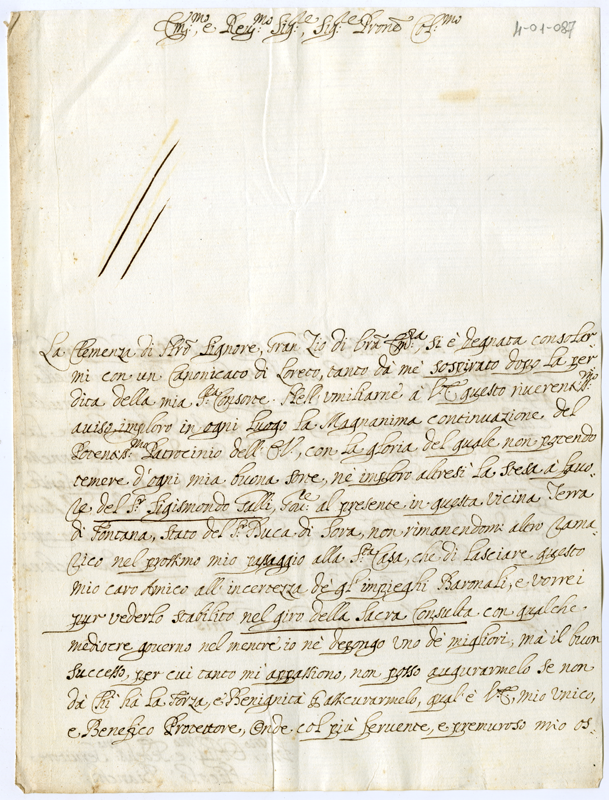 4-01-087
Em.mo e Rev.mo Sig.re Sig.re Pron Col.mo
La Clemenza di Nrõ Signore, Gran Zio di Vrã Em.za si è degnata consolar-
mi con un Canonicato di Loreto, tanto da me sospirato dopo la per
dita della mia Consorte. Nell'umiliarne à V.E. questo riverent.mo
auiso imploro in ogni Luogo la Magnanima continuazione del
Potentis.mo Patrocinio dell'E.V., con la gloria del quale non potendo
temere d'ogni mia buona sorte, ne imploro altresì la stesa à fauo-
re del S.r Sigismondo Talli, al presente in questa vicina Terra
di Fontana, stato del S.r Duca di Sora, non rimanendomi altro ramma-
rico nel prossimo mio passaggio alla S.ta Casa, che di lasciare questo
mio caro Amico all'incertezza de gl'impieghi Baronali, e vorrei
pur vederlo stabilito nel giro della Sacra Consulta con qualche
mediocre governo nel mentre io ne depongo uno de migliori, mà il buon
successo, per cui tanto mi appassiono, non posso augurarmelo se non
dà chi hà la forza, e Benignità d'assicurarmelo, qual'è V.E. mio unico,
e Benefico Protettore, Onde col più feruente, e premuroso mio os-